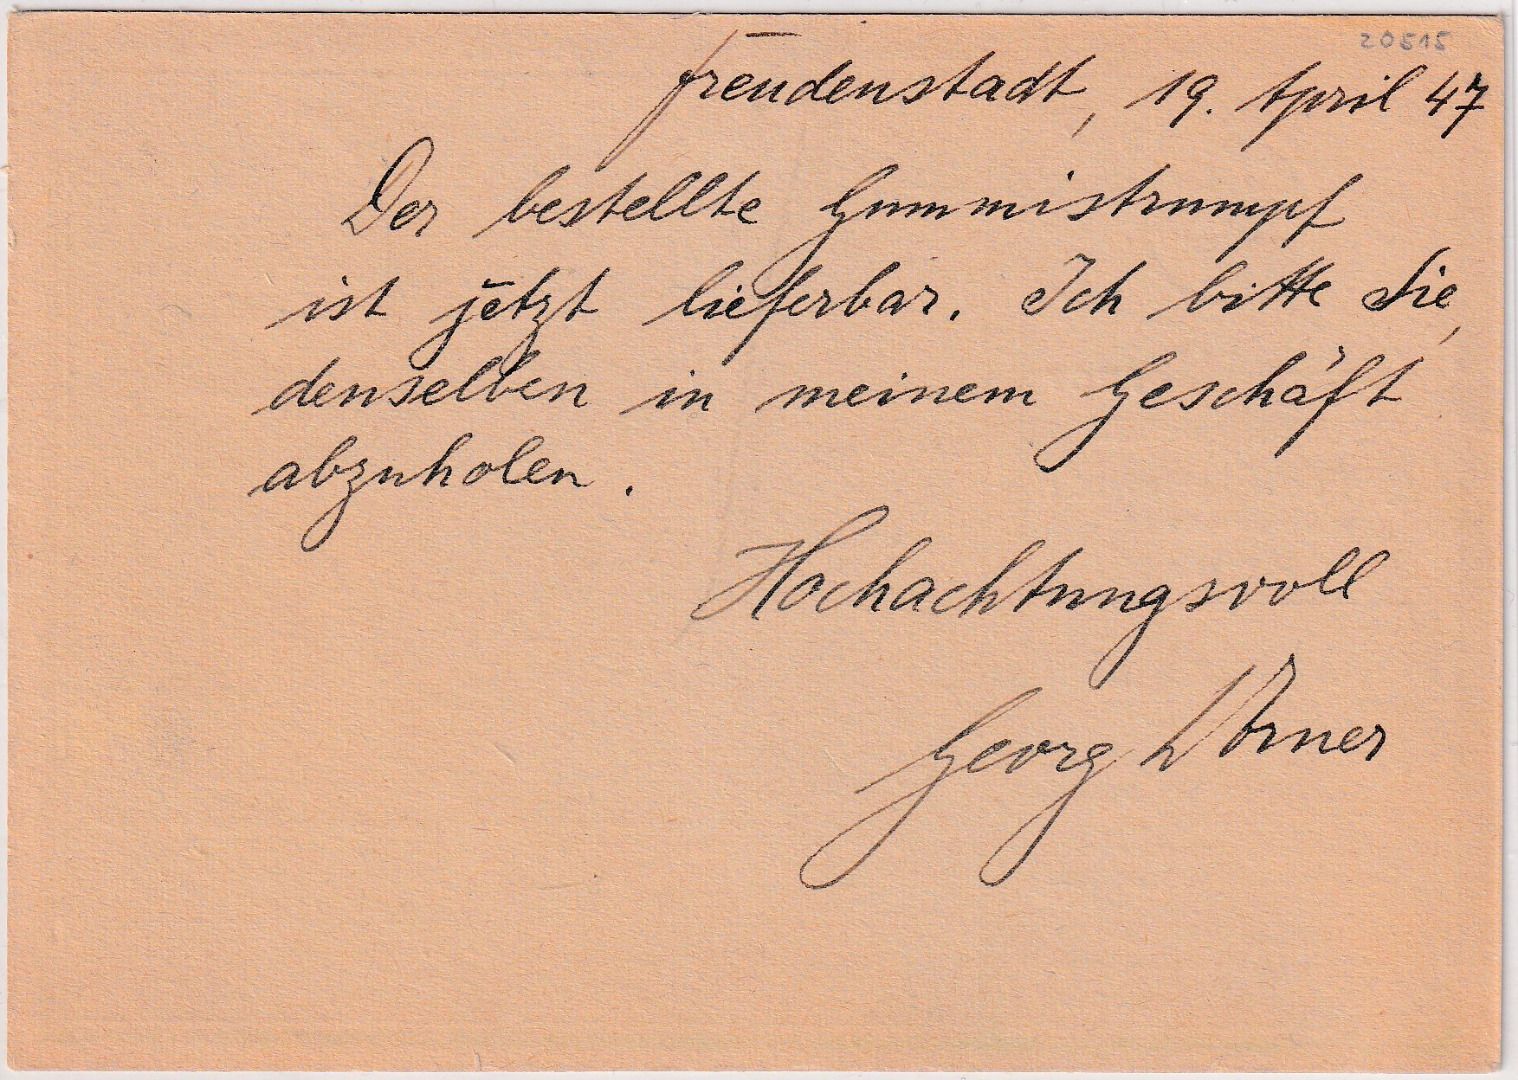 20515
Freudenstadt, 19. April 47
Der bestellte Gummistrumpf
ist jetzt lieferbar. Ich bitte Sie,
denselben in meinem Geschäft
abzuholen.
Hochachtungsvoll
Georg Wörner